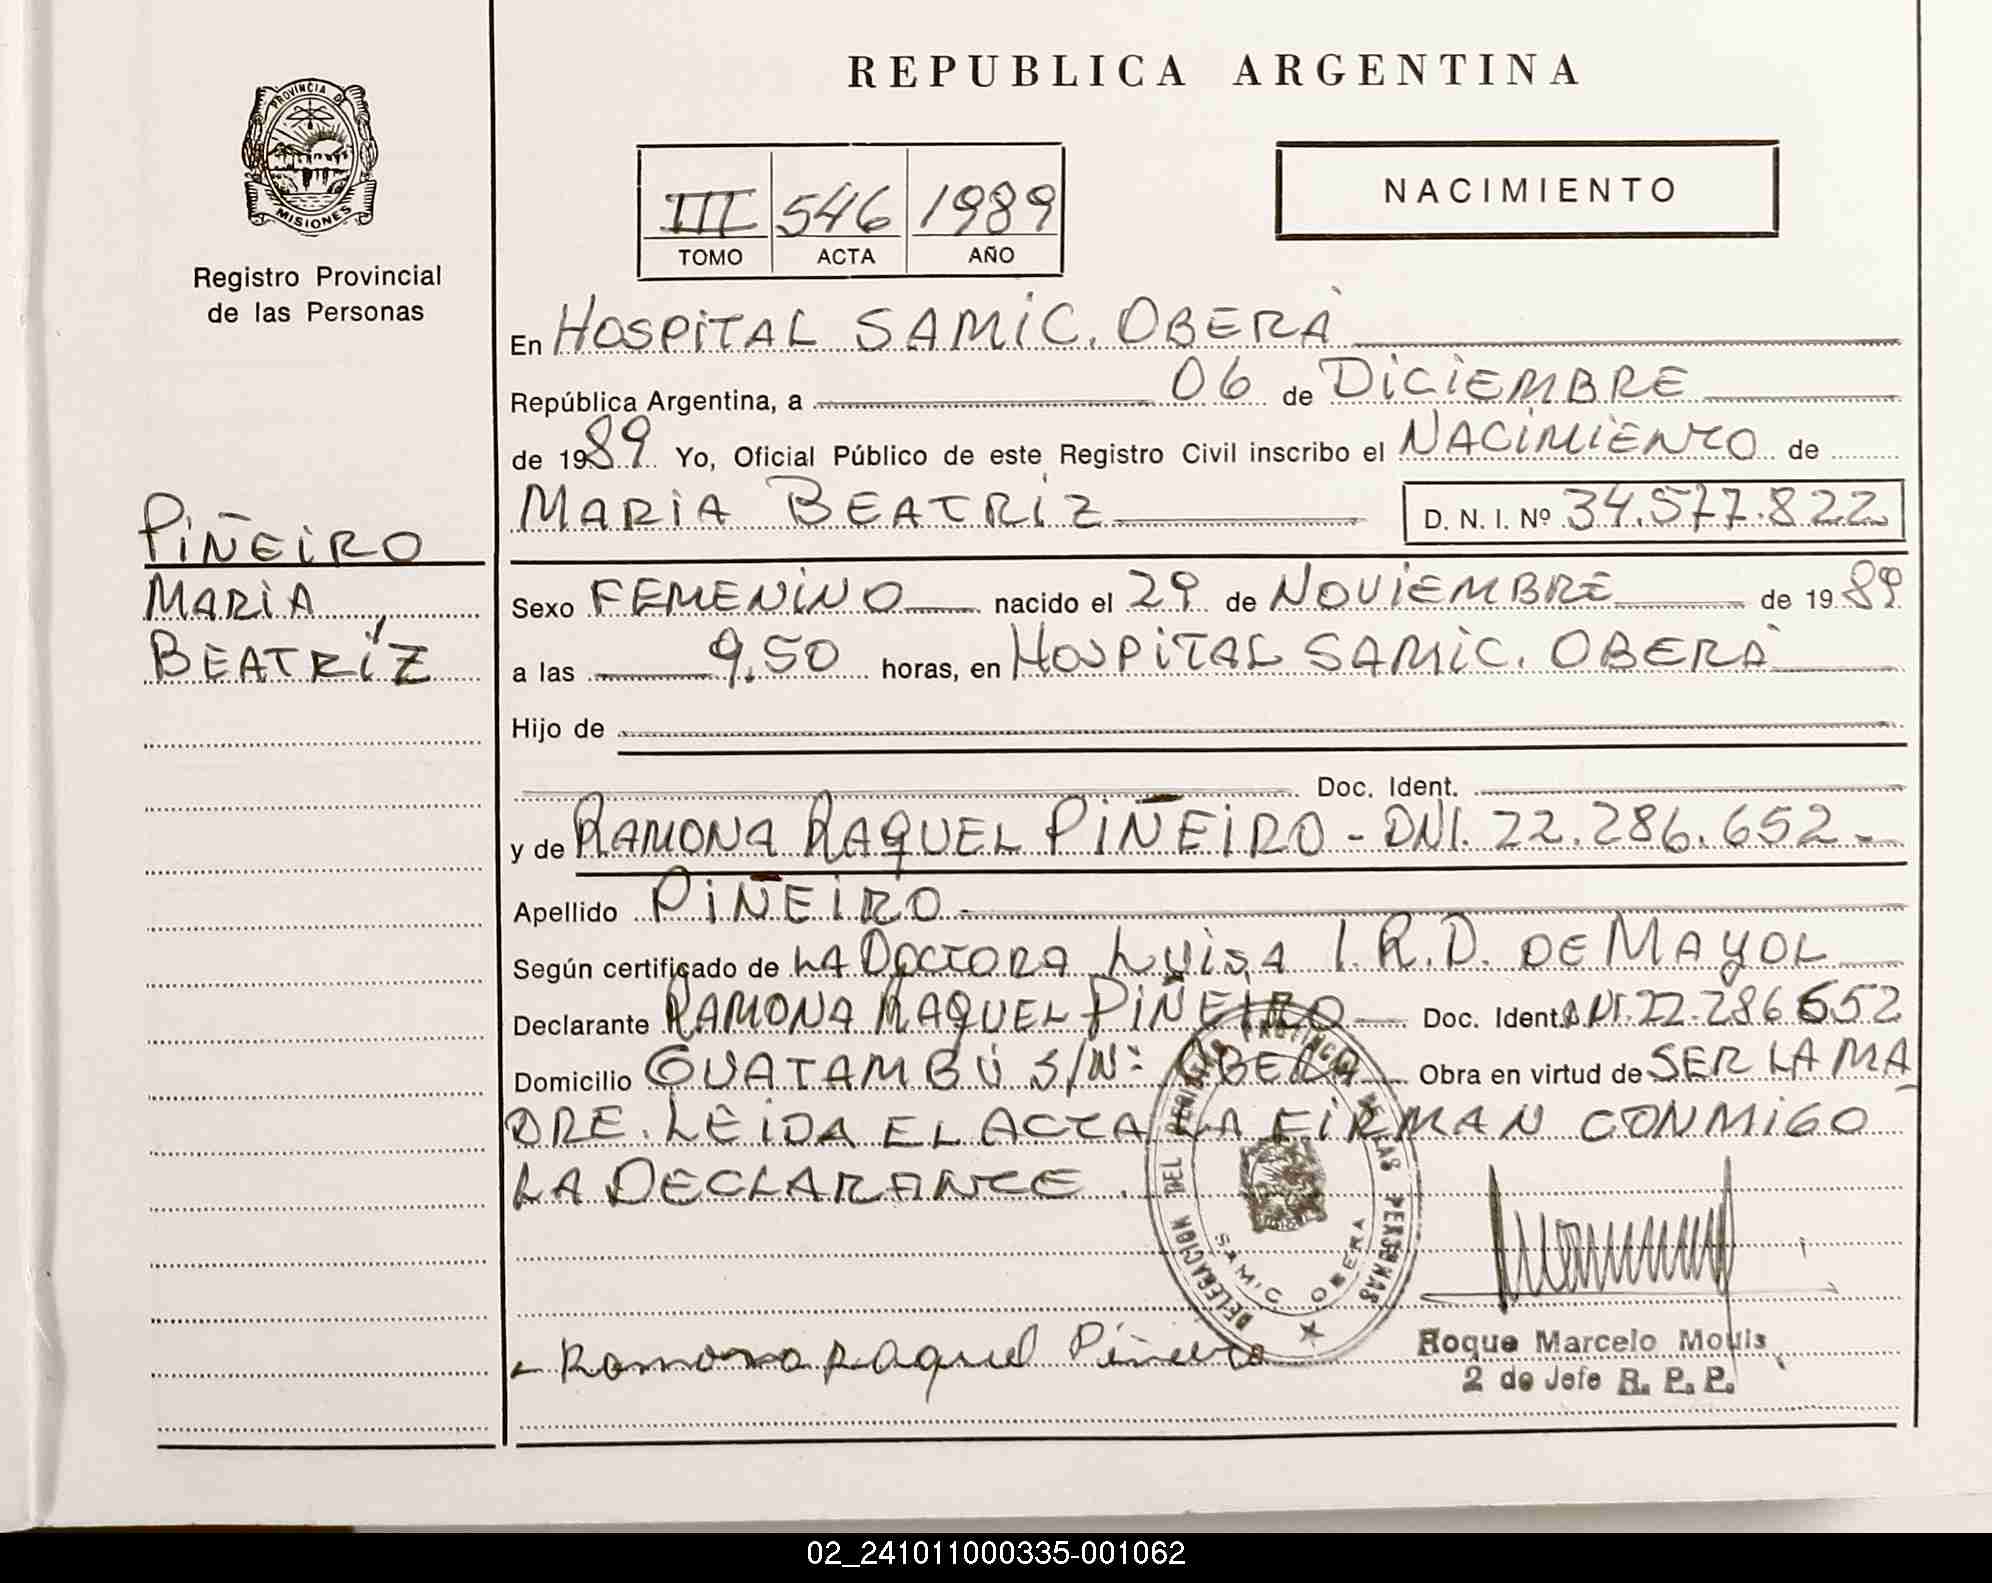 REPUBLICA ARGENTINA
PROVINCIA DE
MISIONES
Registro Provincial
de las Personas
III 546 1989
TOMO ACTA AÑO
NACIMIENTO
En HOSPITAL SAMIC. OBERÁ
República Argentina, a 06 de DICIEMBRE
de 1989 Yo, Oficial Público de este Registro Civil inscribo el NACIMIENTO de
MARIA BEATRIZ D. N. I. Nº 34.577.822
PIÑEIRO
MARIA
BEATRÍZ
Sexo FEMENINO nacido el 29 de NOVIEMBRE de 1989
a las 9,50 horas, en HOSPITAL SAMIC. OBERÁ
Hijo de
Doc. Ident.
y de RAMONA RAQUEL PIÑEIRO - DNI. 22.286.652.-
Apellido PIÑEIRO.
Según certificado de LA DOCTORA LUISA I. R. D. DE MAYOL
Declarante RAMONA RAQUEL PIÑEIRO Doc. Ident. DNI. 22.286652
Domicilio GUATAMBÚ S/Nº OBERÁ Obra en virtud de SER LA MA
DRE. LEIDA EL ACTA LA FIRMAN CONMIGO
LA DECLARANTE.
DELEGACION DEL REGISTRO PROVINCIAL DE LAS PERSONAS
SAMIC OBERA
Ramona Raquel Piñeiro
Roque Marcelo Moulis
2 do Jefe R. P. P.
02_241011000335-001062